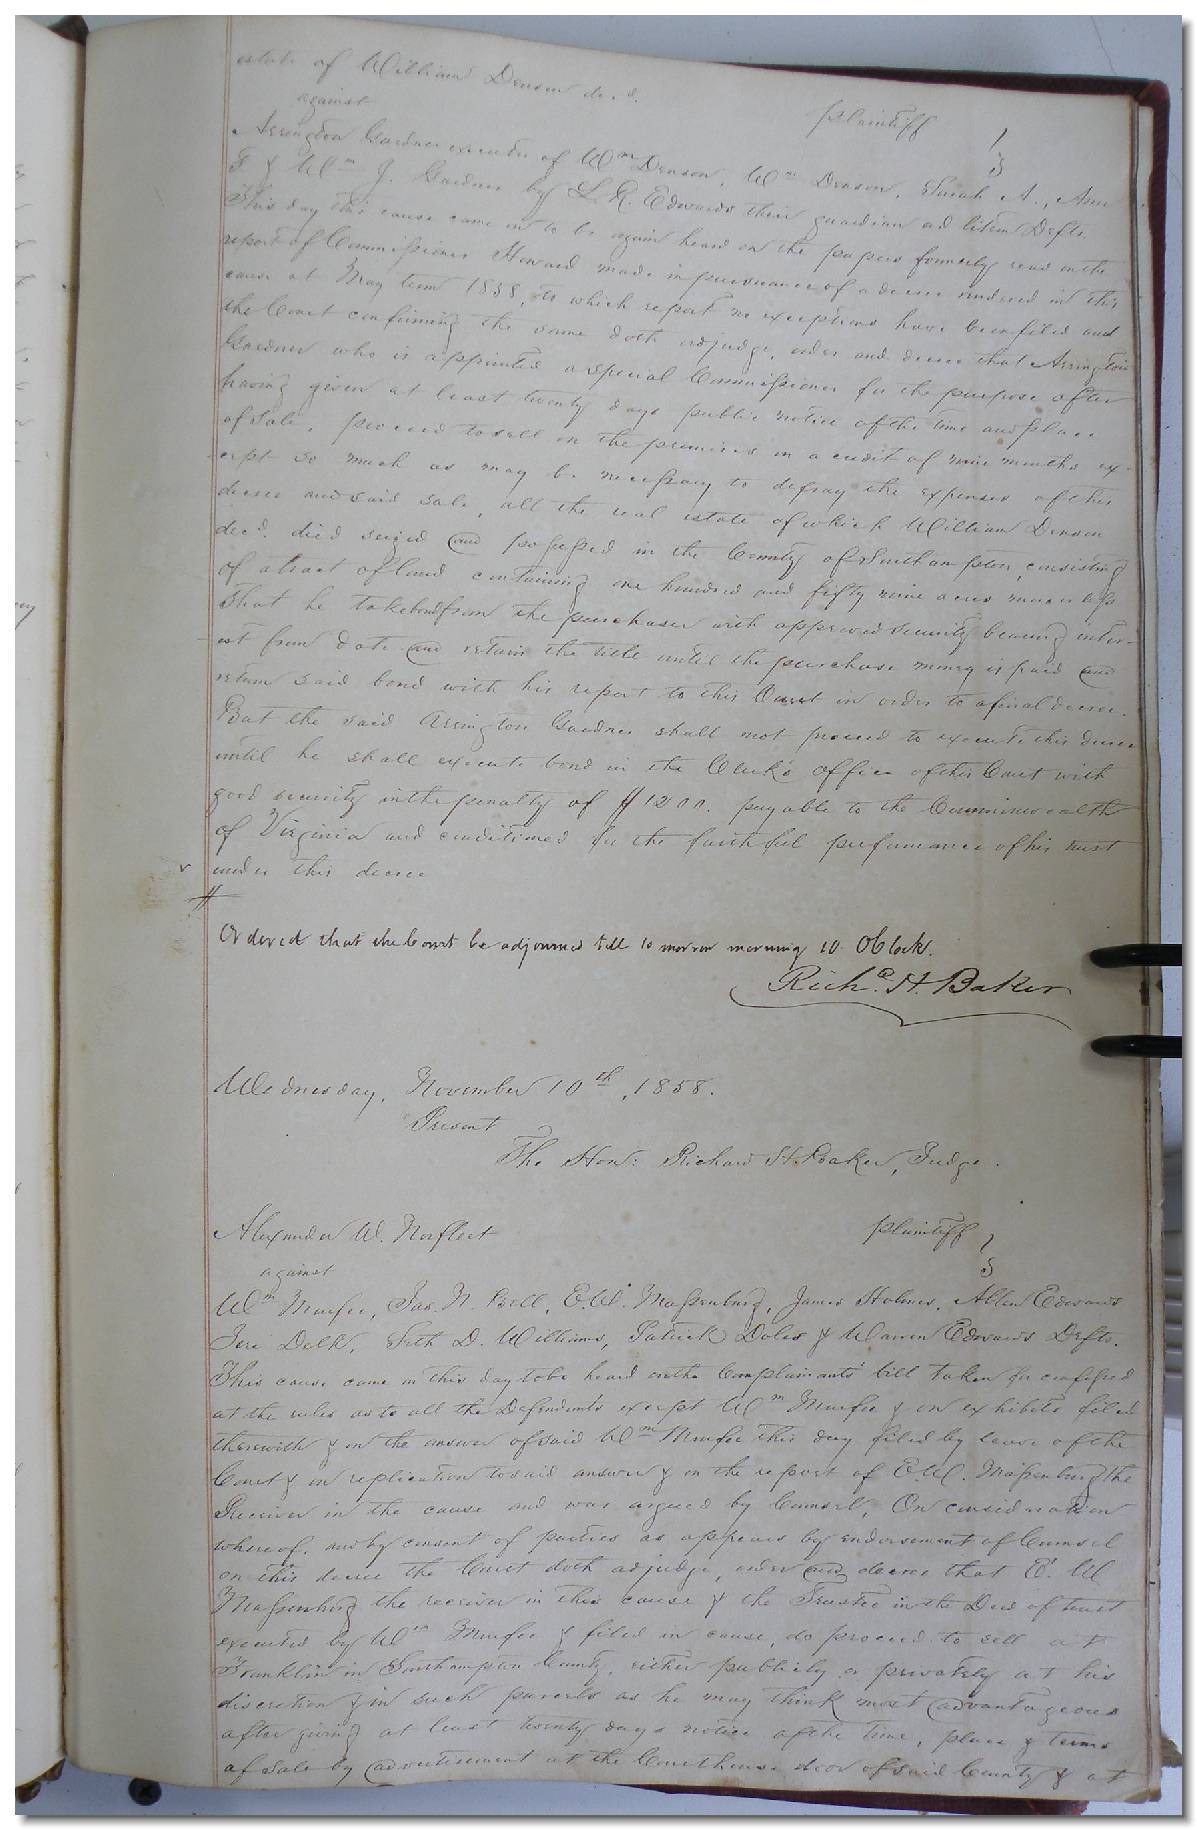 estate of William Denson dec.d.
against plaintiff
Arrington Gardner executor of Wm Denson, Wm Denson, Sarah A., Ann
F & Wm J. Gardner by L. R. Edwards their guardian ad litem Defts.
This day this cause came on to be again heard on the papers formerly read on the
report of Commissioner Howard made in pursuance of a decree rendered in this
cause at May term 1858, to which report no exceptions have been filed and
the Court confirming the same doth adjudge, order and decree that Arrington
Gardner who is appointed a special Commissioner for the purpose after
having given at least twenty days public notice of the time and place
of sale, proceed to sell on the premises on a credit of nine months ex-
cept so much as may be necessary to defray the expenses of this
decree and said sale, all the real estate of which William Denson
decd. died seized and possessed in the County of Southampton, consisting
of a tract of land containing one hundred and fifty nine acres more or less
That he take bond from the purchaser with approved security bearing inter-
est from date and retain the title until the purchase money is paid and
return said bond with his report to this Court in order to a final decree.
But the said Arrington Gardner shall not proceed to execute this decree
until he shall execute bond in the Clerk's office of this Court with
good security in the penalty of $1200. payable to the Commonwealth
of Virginia and conditioned for the faithful performance of his trust
under this decree
Ordered that the Court be adjourned till to morrow morning 10 OClock.
Richd. H. Baker
Wednesday, November 10th, 1858.
Present
The Hon: Richard H. Baker, Judge.
Alexander W. Norfleet plaintiff
against
Wm Murfee, Jas. N. Bell, E. W. Massenburg, James Holmes, Allen Edwards
Jere Delk, Seth D. Williams, Patrick Doles & Warren Edwards Defts.
This cause came on this day to be heard on the Complainants' bill taken for confessed
at the rules as to all the Defendants except Wm Murfee & on exhibits filed
therewith & on the answer of said Wm Murfee this day filed by leave of the
Court & on replication to said answer & on the report of E. W. Massenburg the
Receiver in the cause and was argued by Counsel, On consideration
whereof, and by consent of parties as appears by endorsement of Counsel
on this decree the Court doth adjudge, order and decree that E. W
Massenburg the receiver in this cause & the Trustee in the Deed of trust
executed by Wm Murfee & filed in cause, do proceed to sell at
Franklin in Southampton County, either publicly or privately at his
discretion & in such parcels as he may think most advantageous
after giving at least twenty days notice of the time, place & terms
of sale by advertisement at the Courthouse door of said County & at